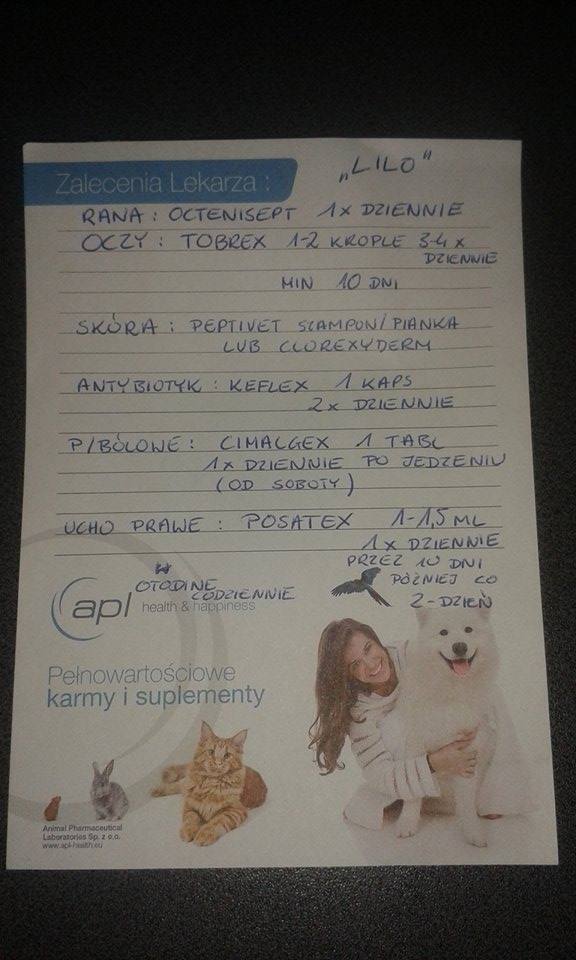 "LILO"
Zalecenia Lekarza :
RANA : OCTENISEPT 1x DZIENNIE
OCZY : TOBREX 1-2 KROPLE 3-4 x
DZIENNIE
MIN 10 DNI
SKÓRA : PEPTIVET SZAMPON/PIANKA
LUB CLOREXYDERM
ANTYBIOTYK : KEFLEX 1 KAPS
2x DZIENNIE
P/BÓLOWE : CIMALGEX 1 TABL
1x DZIENNIE PO JEDZENIU
(OD SOBOTY)
UCHO PRAWE : POSATEX 1-1,5 ML
1x DZIENNIE
PRZEZ 10 DNI
OTODINE PÓŹNIEJ CO
CODZIENNIE 2-DZIEŃ
apl health & happiness
Pełnowartościowe
karmy i suplementy
Animal Pharmaceutical
Laboratories Sp. z o.o.
www.apl-health.eu